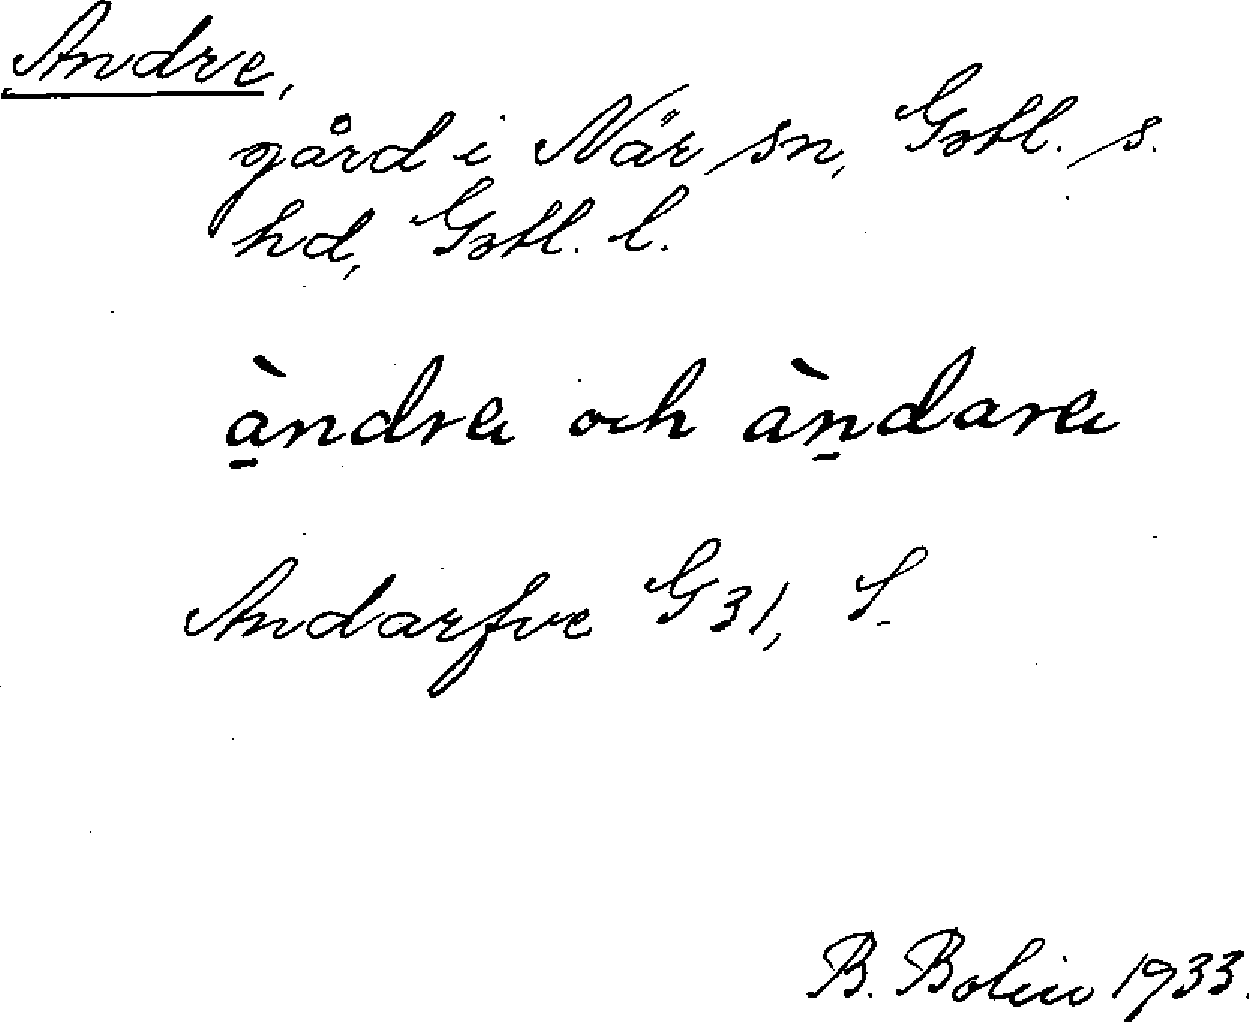 Andre,
gård i När sn, Gotl. s.
hd, Gotl. l.
àndrea och àndarea
Andarfve G 31, S.
B. Bolin 1933.